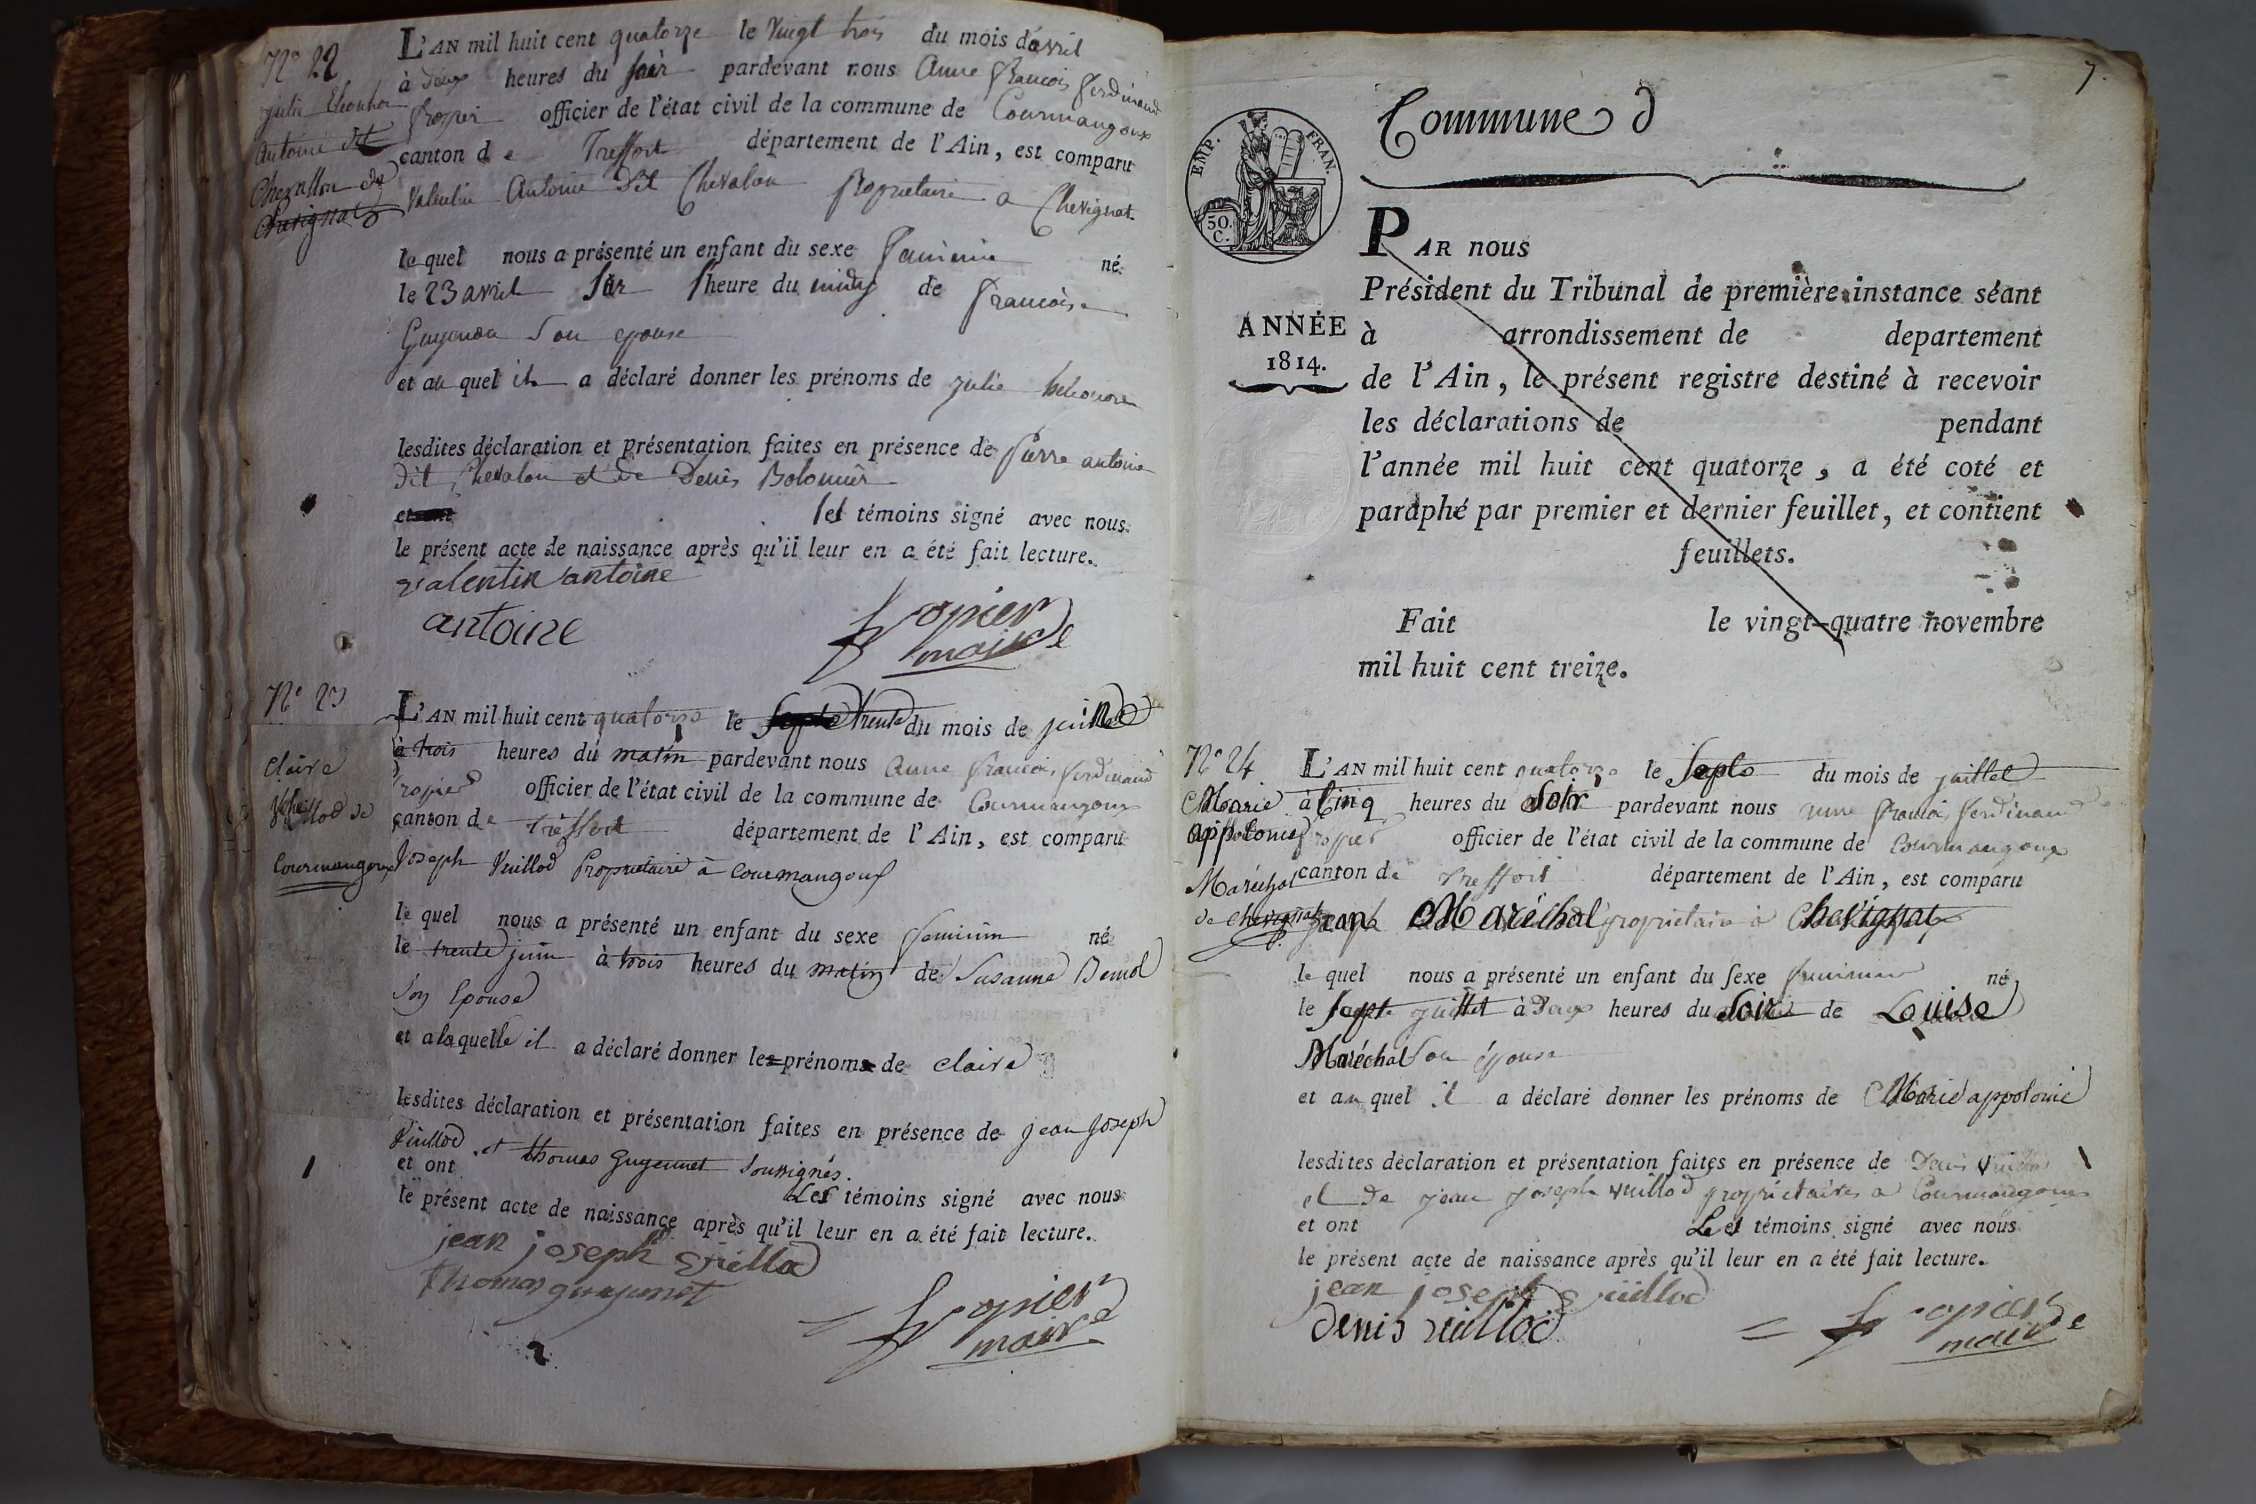 N° 22
julie
antoine dit
Chevallon de
Chevignat
L'AN mil huit cent quatorze le vingt trois du mois d'avril
à deux heures du soir pardevant nous Anne françois ferdinand
officier de l'état civil de la commune de Courmangoux
canton de Treffort département de l'Ain, est comparu
Valentin Antoine dit Chevalon Proprietaire a Chevignat
le quel nous a présenté un enfant du sexe feminin né
le 23 avril sur l'heure du midy de francoise
son epouse
et au quel il a déclaré donner les prénoms de julie
lesdites déclaration et présentation faites en présence de Pierre antoine
dit Chevalon et de Denis Bolomier
et ont les témoins signé avec nous
le présent acte de naissance après qu'il leur en a été fait lecture.
valentin antoine
antoine
maire
N° 23
Claire
Vuillod de
Courmangoux
L'AN mil huit cent quatorze le trente du mois de juin
à trois heures du matin pardevant nous Anne francois ferdinand
officier de l'état civil de la commune de Courmangoux
canton de Treffort département de l'Ain, est comparu
Joseph Vuillod Proprietaire à Courmangoux
le quel nous a présenté un enfant du sexe feminin né
le trente juin à trois heures du matin de Susanne
son Epouse
et a laquelle il a déclaré donner les prénoms de claire
lesdites déclaration et présentation faites en présence de jean joseph
Vuillod et thomas Guyennet soussignés.
et ont Les témoins signé avec nous
le présent acte de naissance après qu'il leur en a été fait lecture.
jean joseph vuillod
thomas guyennet
maire
7.
Commune d
EMP. FRAN.
50.
C.
ANNÉE
1814.
PAR nous
Président du Tribunal de première instance séant
à arrondissement de departement
de l'Ain, le présent registre destiné à recevoir
les déclarations de pendant
l'année mil huit cent quatorze, a été coté et
paraphé par premier et dernier feuillet, et contient
feuillets.
Fait le vingt-quatre novembre
mil huit cent treize.
N° 24
Marie
appolonie
Maréchal
de Chevignat
L'AN mil huit cent quatorze le Sept du mois de juillet
à Cinq heures du Soir pardevant nous anne francois ferdinand
officier de l'état civil de la commune de Courmangoux
canton de treffort département de l'Ain, est comparu
Maréchal proprietaire à Chevignat
le quel nous a présenté un enfant du sexe feminin né
le Sept juillet à deux heures du Soir de Louise
Maréchal son épouse
et au quel il a déclaré donner les prénoms de Marie appolonie
lesdites déclaration et présentation faites en présence de Denis Vuillod
et de jean joseph vuillod propriétaires a Courmangoux
et ont Les témoins signé avec nous
le présent acte de naissance après qu'il leur en a été fait lecture.
jean joseph vuillod
denis vuillod
maire